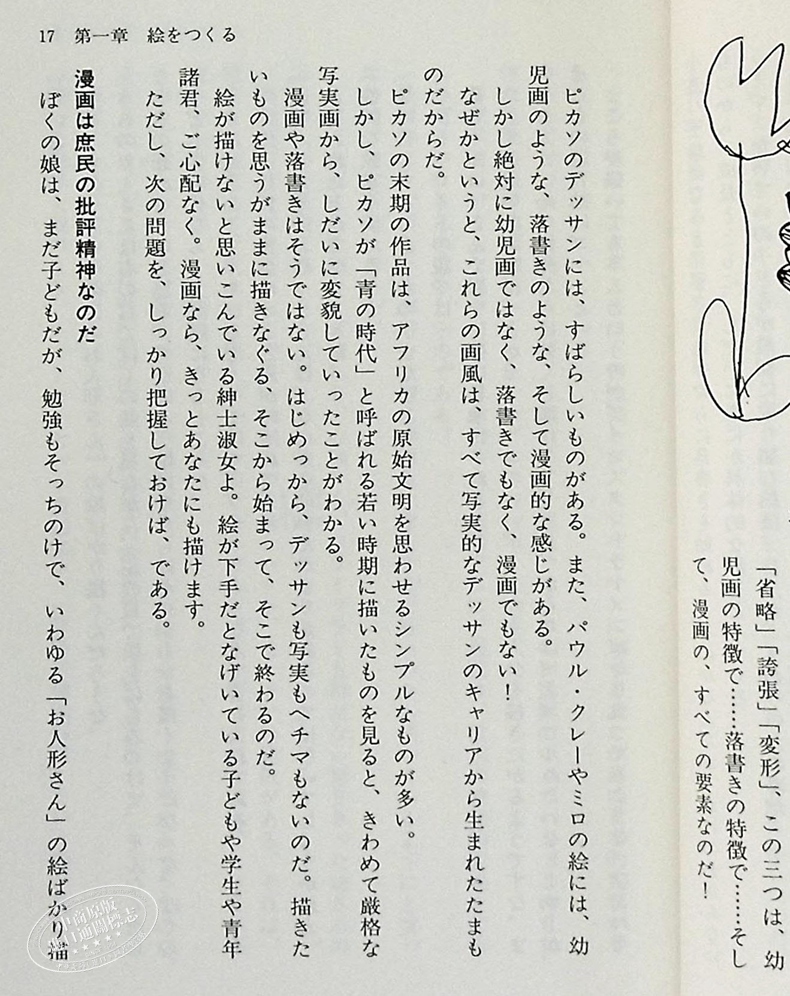 「省略」「誇張」「変形」、この三つは、幼
児画の特徴で……落書きの特徴で……そし
て、漫画の、すべての要素なのだ！
17 第一章 絵をつくる
ピカソのデッサンには、すばらしいものがある。また、パウル・クレーやミロの絵には、幼
児画のような、落書きのような、そして漫画的な感じがある。
しかし絶対に幼児画ではなく、落書きでもなく、漫画でもない！
なぜかというと、これらの画風は、すべて写実的なデッサンのキャリアから生まれたたまも
のだからだ。
ピカソの末期の作品は、アフリカの原始文明を思わせるシンプルなものが多い。
しかし、ピカソが「青の時代」と呼ばれる若い時期に描いたものを見ると、きわめて厳格な
写実画から、しだいに変貌していったことがわかる。
漫画や落書きはそうではない。はじめっから、デッサンも写実もヘチマもないのだ。描きた
いものを思うがままに描きなぐる、そこから始まって、そこで終わるのだ。
絵が描けないと思いこんでいる紳士淑女よ。絵が下手だとなげいている子どもや学生や青年
諸君、ご心配なく。漫画なら、きっとあなたにも描けます。
ただし、次の問題を、しっかり把握しておけば、である。
漫画は庶民の批評精神なのだ
ぼくの娘は、まだ子どもだが、勉強もそっちのけで、いわゆる「お人形さん」の絵ばかり描